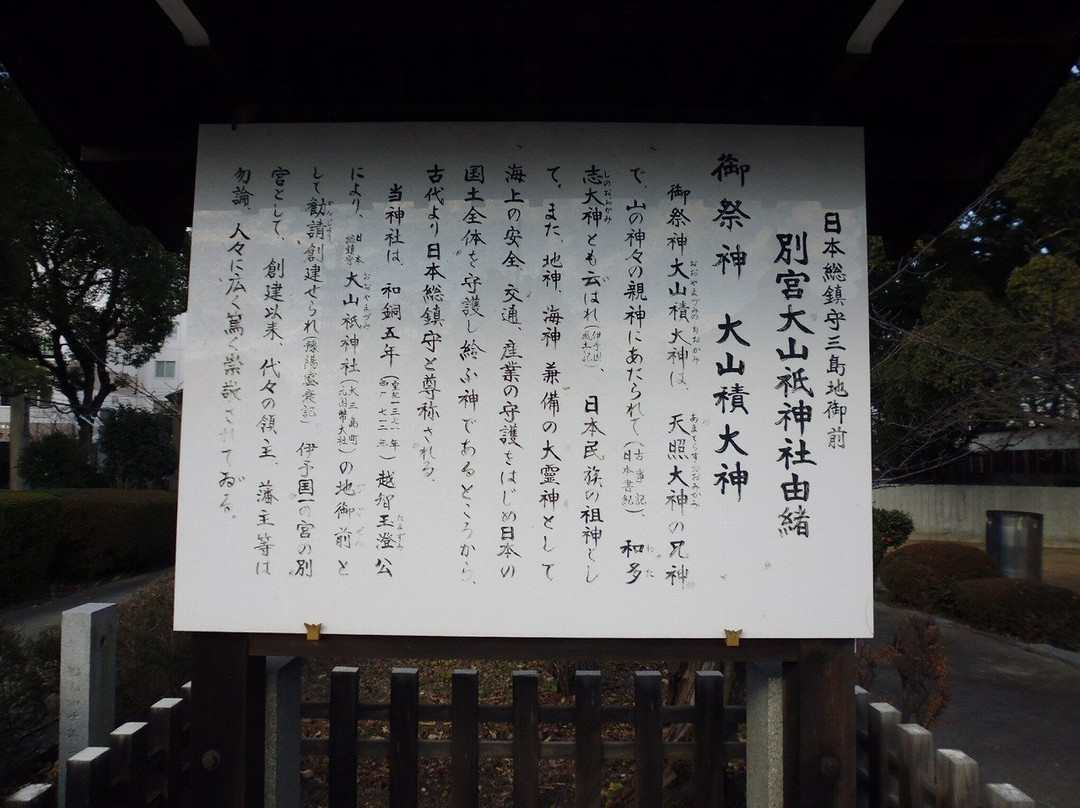 日本総鎮守三島地御前
別宮大山祇神社由緒
御祭神 大山積大神
御祭神大山積大神は、天照大神の兄神
で、山の神々の親神にあたられて(古事記 日本書紀)、和多
志大神とも云はれ(伊予国風土記)、日本民族の祖神とし
て、また、地神、海神 兼備の大霊神として
海上の安全、交通、産業の守護をはじめ日本の
国土全体を守護し給ふ神であるところから、
古代より日本総鎮守と尊称される。
当神社は、和銅五年(皇紀一三七二年 西七一二年)越智玉澄公
により、日本総鎮守大山祇神社(大三島町 元国幣大社)の地御前と
して勧請創建せられ 伊予国一の宮の別
宮として、創建以来、代々の領主、藩主等は
勿論、人々に広く篤く崇敬されてゐる。